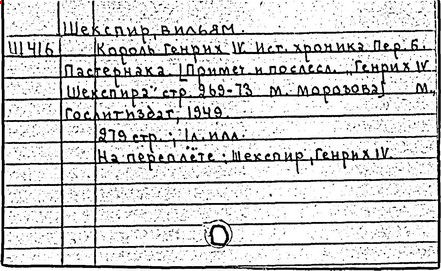 Шекспир, Вильям.
Ш416 Король Генрих IV. Ист. хроника Пер. Б.
Пастернака. [Примеч и послесл. „Генрих IV
Шекспира" стр. 269-73 М. Морозова] М.,
Гослитиздат, 1949.
279 стр.; 1 л. илл.
На переплёте: Шекспир, Генрих IV.